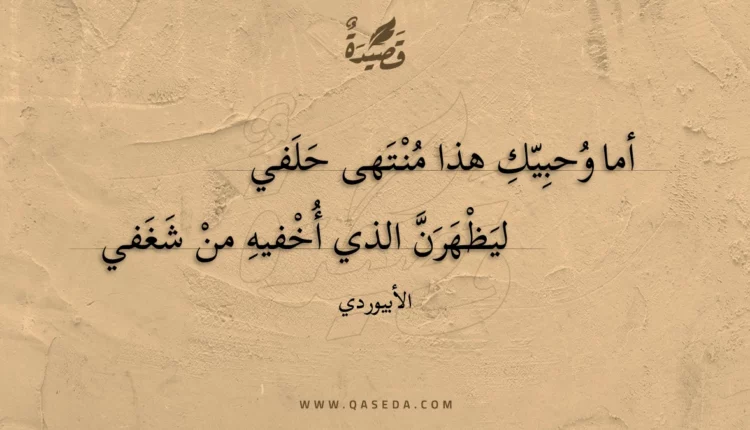 قَصِيْدَةٌ
أما وُحبِيّكِ هذا مُنْتَهى حَلَفي
ليَظْهَرَنَّ الذي أُخْفيهِ منْ شَغَفي
الأبيوردي
WWW.QASEDA.COM